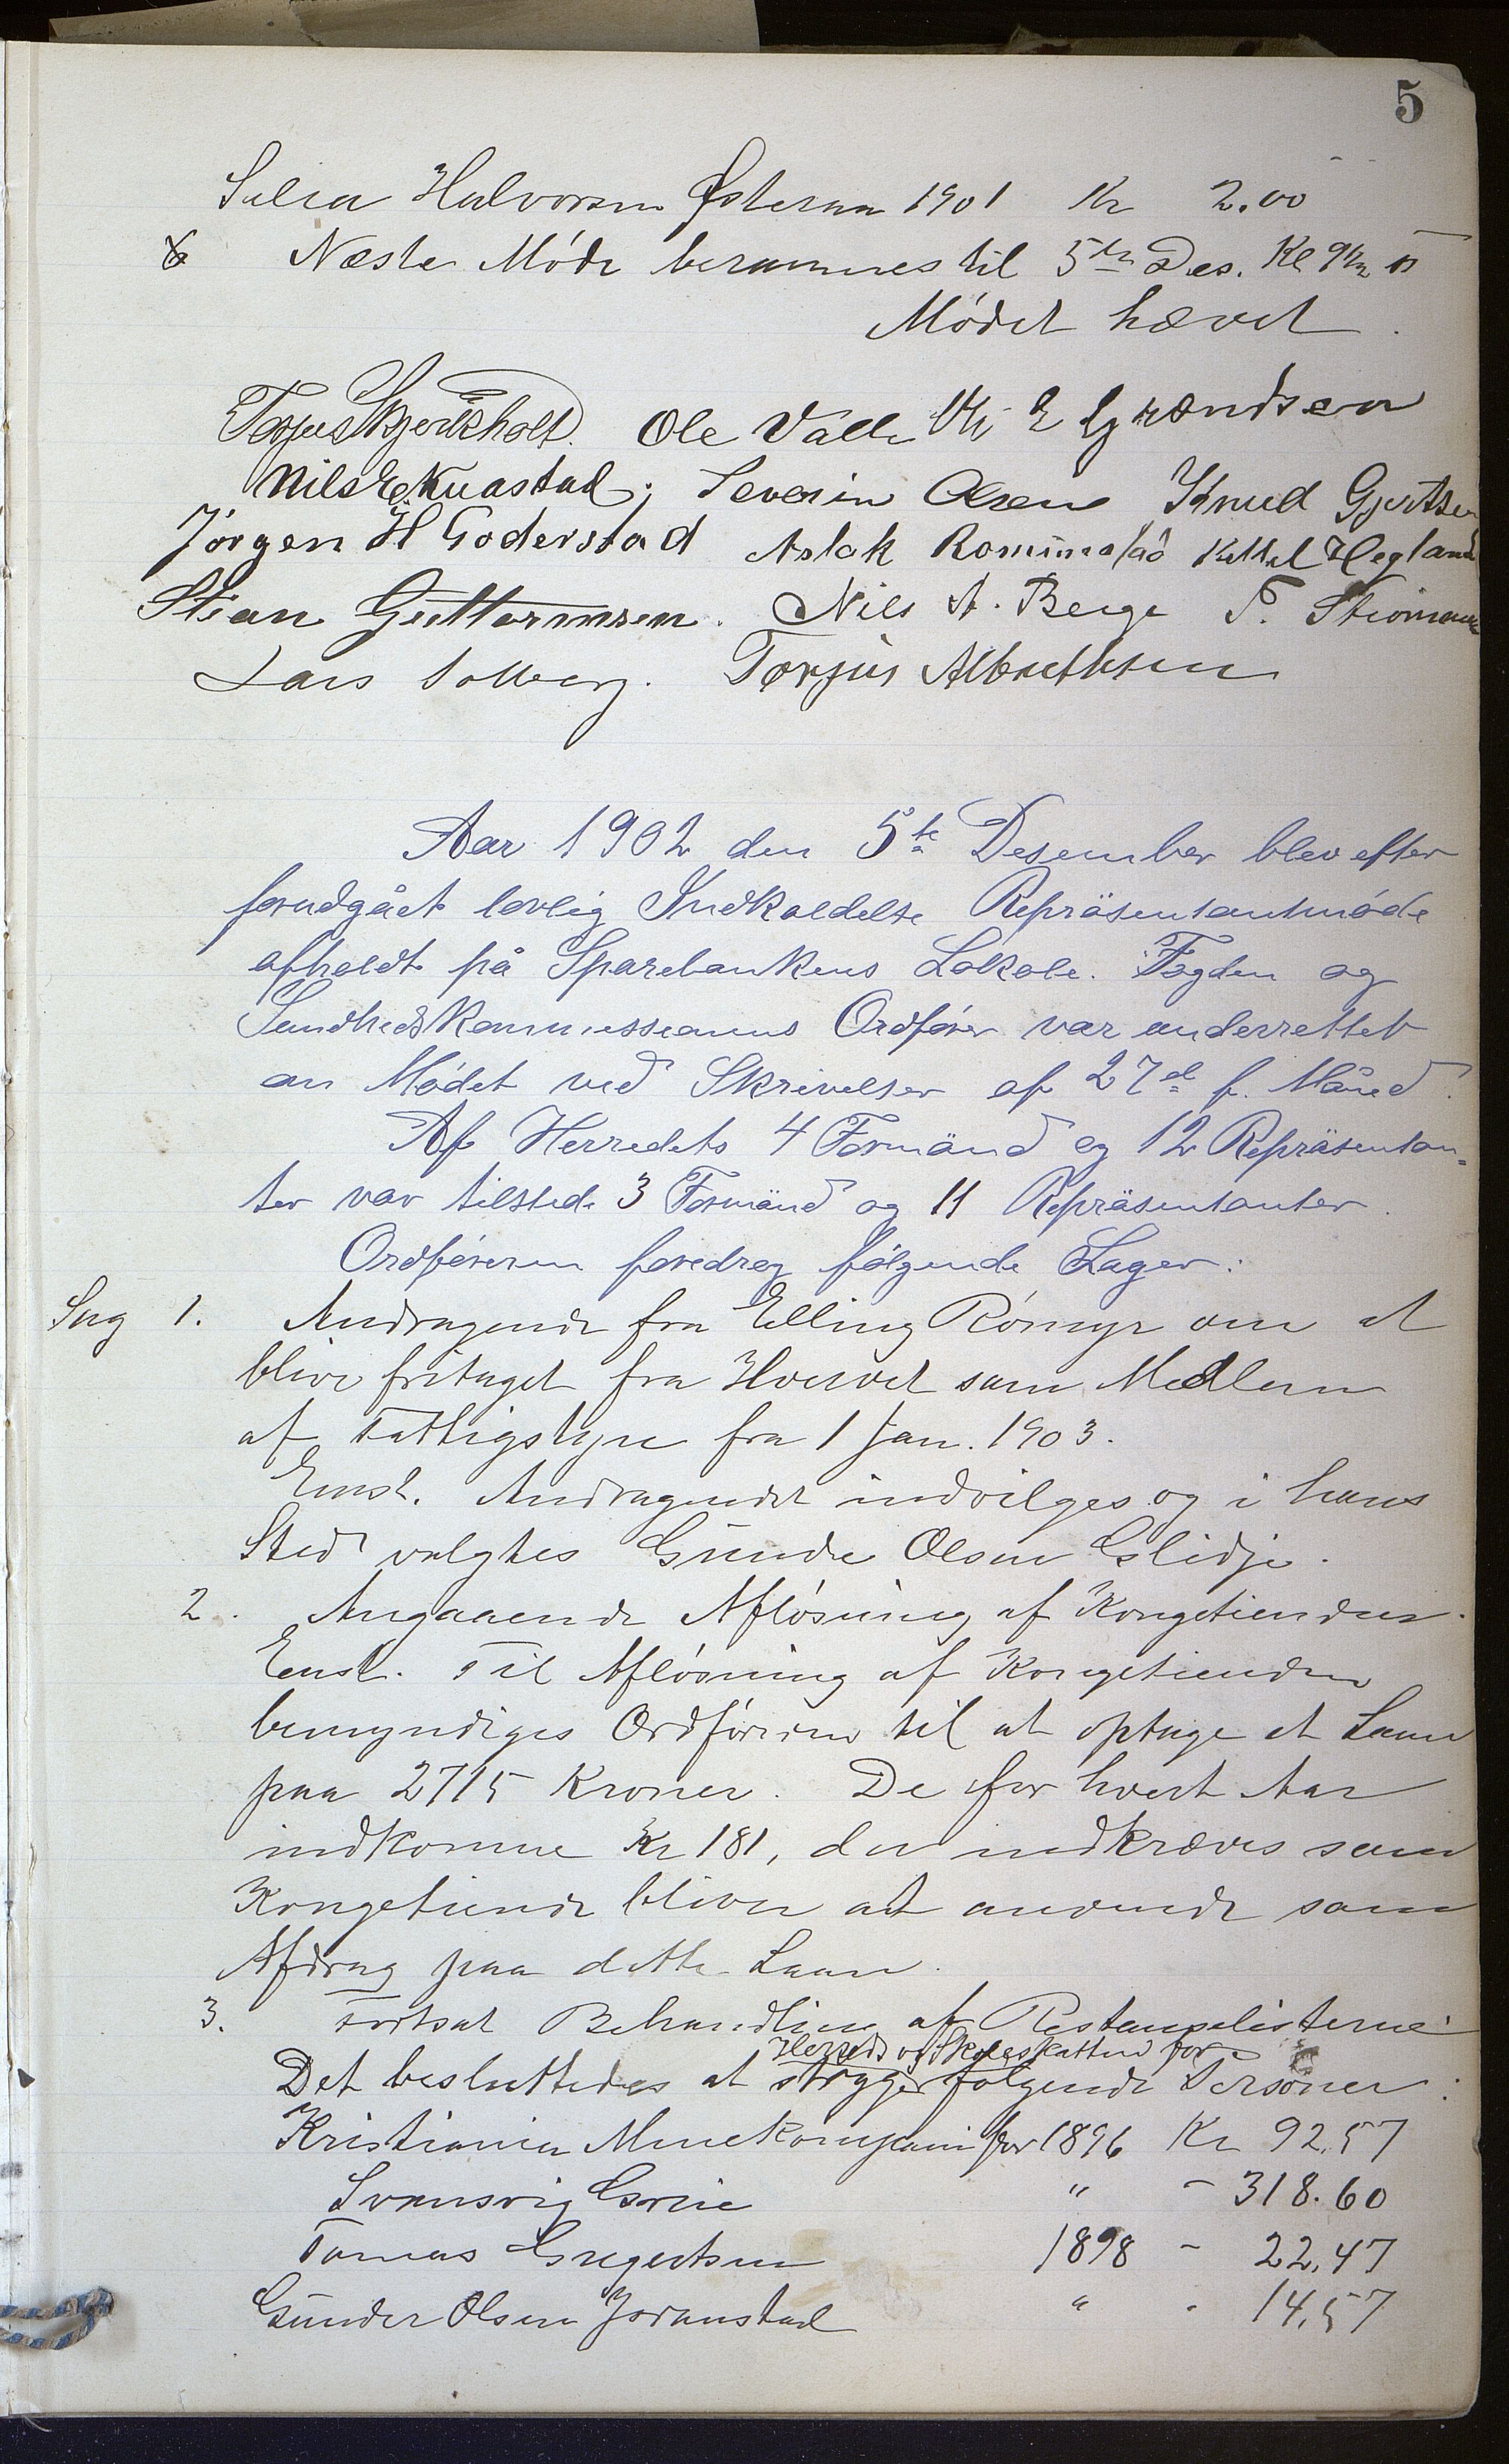 5
Halvorsen Østeraa 1901 Kr 2.00
Næste Møde berammes til 5te Des. Kl 9
Mødet hævet.
Torjus Skjerkholt. Ole Valle E Gjrændsen
Nils E Kvastad. Severin Olsen Knud Gjertsen
Jørgen H Goderstad Aslak Kittel Hegland
Stian Guttormsen. Nils A. Berge T.
Lars Solberg. Torjus Albrethsen
Aar 1902 den 5te Desember blev efter
forudgået lovlig Indkaldelse Repräsentantmøde
afholdt på Sparebankens Lokale. Fogden og
Sundhedskommissionens Ordfører var underrettet
om Mødet ved Skrivelser af 27de f. Måned.
Af Herredets 4 Formänd og 12 Repräsentan-
ter var tilstede 3 Formänd og 11 Repräsentanter.
Ordføreren foredrog følgende Sager:
Sag 1. Andragende fra Elling Rømyr om at
blive fritaget fra Hvervet som Medlem
af Fattigstyre fra 1 Jan. 1903.
Enst. Andragendet indvilges og i hans
Sted valgtes Gunder Olsen Glidje.
2. Angaaende Afløsning af Kongetienden.
Enst. Til Afløsning af Kongetienden
bemyndiges Ordføreren til at optage et Laan
paa 2715 Kroner. De for hvert Aar
indkomne Kr 181, der indkræves som
Kongetiende bliver at anvende som
Afdrag paa dette Laan.
3. Fortsat Behandling af Restanselisterne
Herreds og Skoleskatten for
Det besluttedes at stryge følgende Personer:
Kristiania Minekompani for 1896 Kr 92,57
Svensvig Grube " - 318.60
Tomas Gregertsen 1898 - 22,47
Gunder Olsen Joranstad " - 14,57